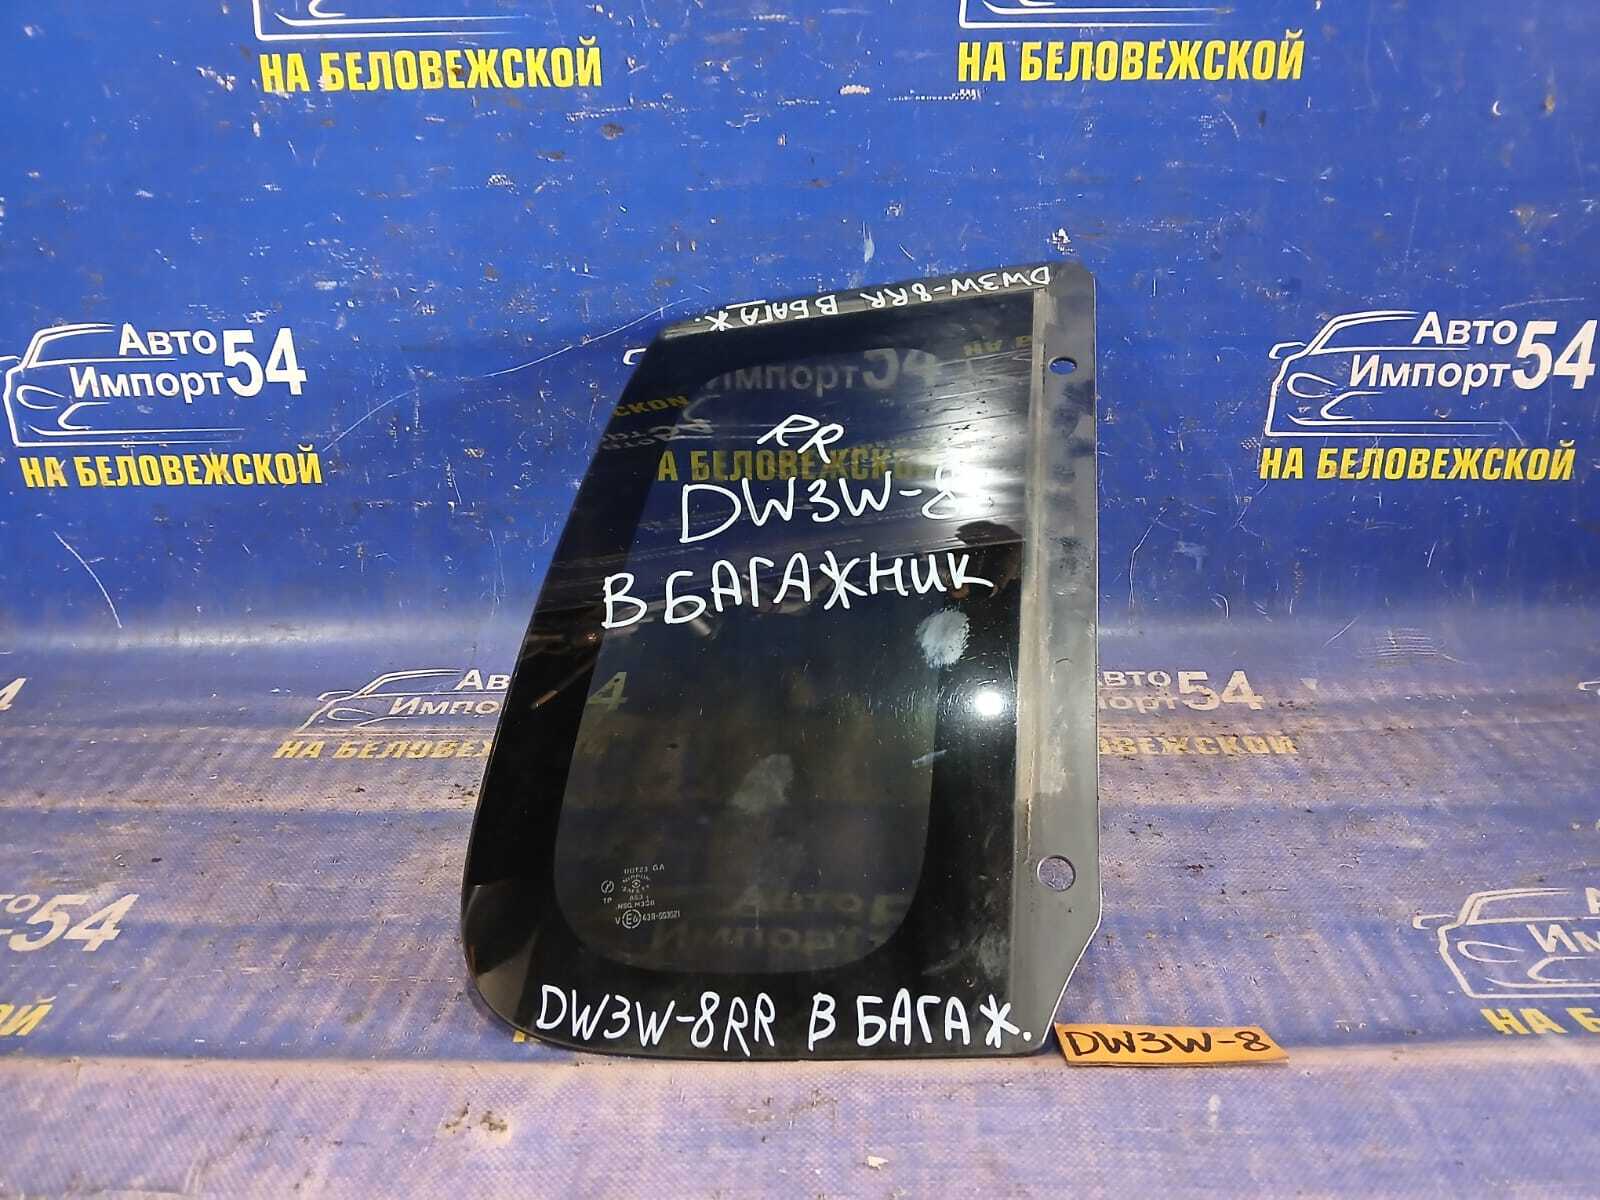 НА БЕЛОВЕЖСКОЙ
НА БЕЛОВЕЖСКОЙ
DW3W-8RR В БАГАЖ.
Авто
Импорт 54
НА БЕЛОВЕЖСКОЙ
Авто
Импорт 54
НА БЕЛОВЕЖСКОЙ
RR
DW3W-8
В БАГАЖНИК
Авто
Импорт
НА БЕЛОВЕЖСКОЙ
54
TP
V E4 43R-003021
DW3W-8RR В БАГАЖ.
DW3W-8
54
НА Б